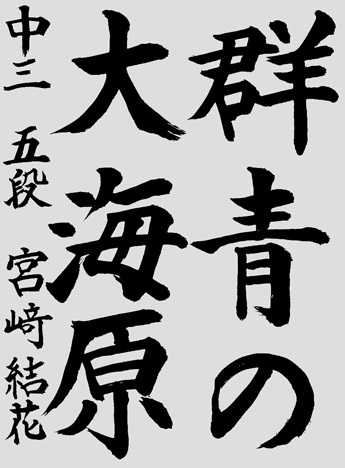 群青の
大海原
中三 五段 宮﨑結花